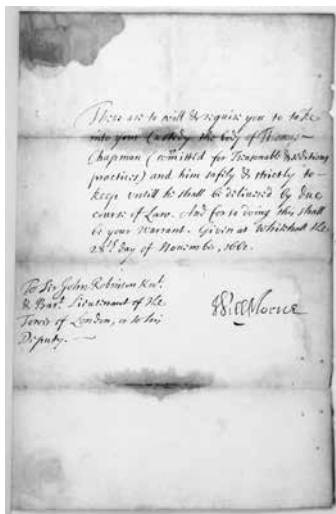 These are to will & require you to take
into your Custody the body of Thomas
Chapman (comitted for Treasonable & seditious
practices) and him safely & strictly to
keep untill he shall be delivered by due
course of Law. And for so doing this shall
be your warrant. Given at Whitehall the
28th day of November, 166
To Sir John Robinson Knt.
& Bart. Lieutenant of the
Tower of London, or to his
Deputy.
Will Morice